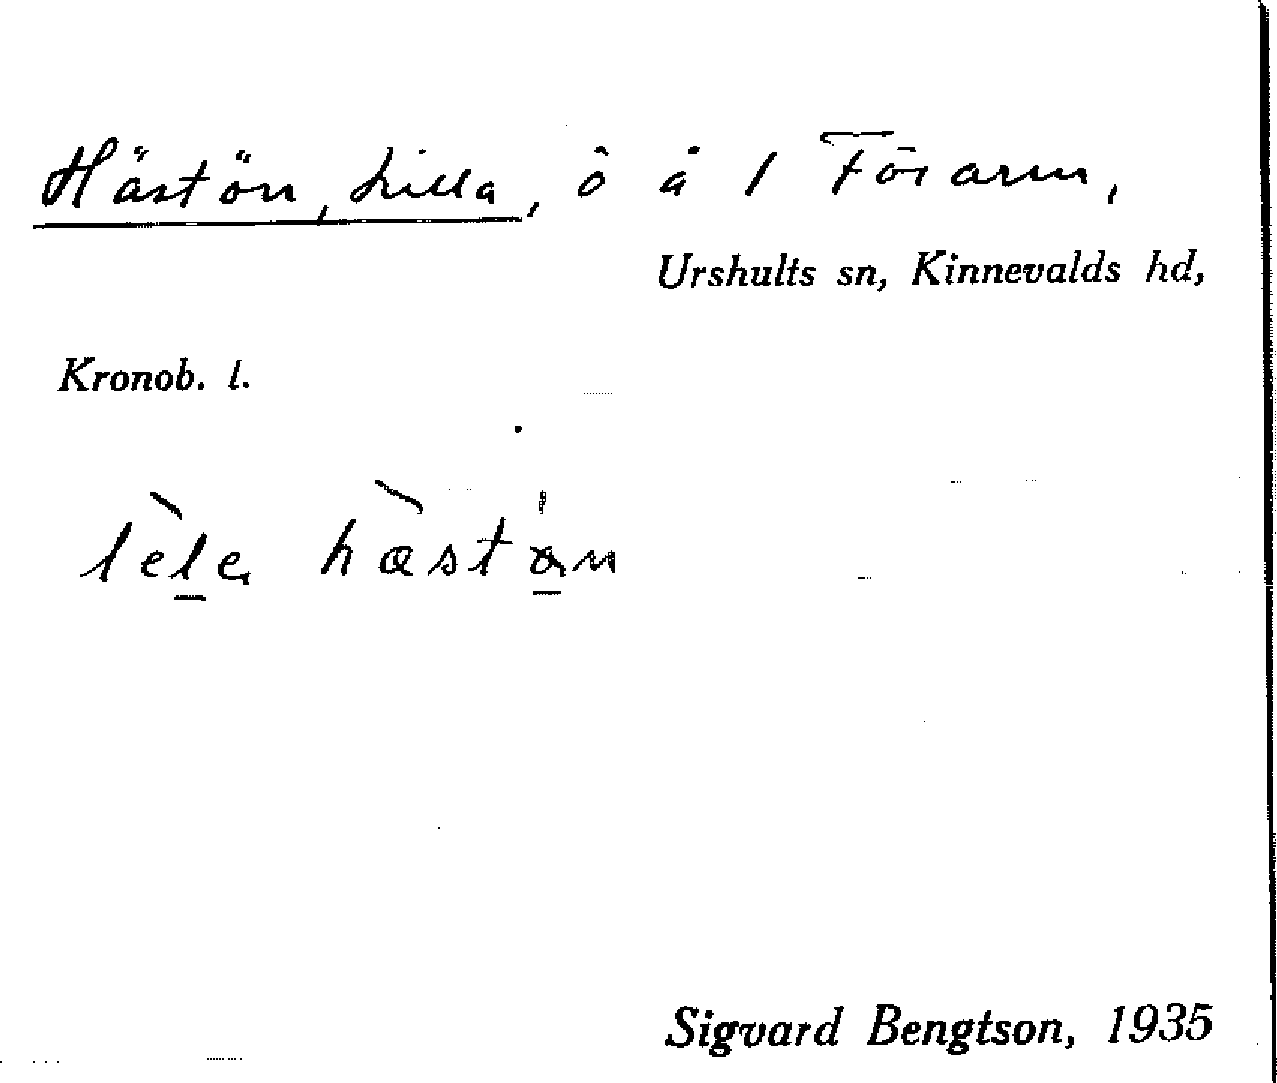 Hästön, Lilla, ö å 1 Förarm,
Urshults sn, Kinnevalds hd,
Kronob. l.
Sigvard Bengtson, 1935